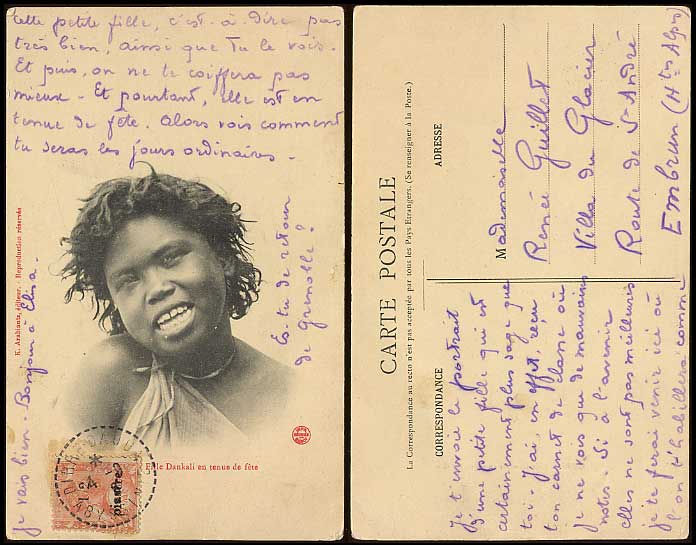 Cette petite fille, c'est-à-dire pas
très bien, ainsi que tu le vois.
Et puis, on ne te coiffera pas
mieux - Et pourtant, elle est en
tenue de fête. Alors vois comment
tu seras les jours ordinaires -
Es-tu de retour
de Grenoble?
Je vais bien - Bonjour à Elisa.
K. Arabiantz, éditeur. - Reproduction réservée
Fille Dankali en tenue de fête
piastre
CARTE POSTALE
La Correspondance au recto n'est pas acceptée par tous les Pays Etrangers. (Se renseigner à la Poste.)
CORRESPONDANCE
ADRESSE
Mademoiselle
Renée Guillet
Villa du Glacier
Route de St André
Embrun (Htes Alpes)
Je t'envoie le portrait
d'une petite fille qui est
certainement plus sage que
toi - J'ai, en effet, reçu
ton carnet de classe où
je ne vois que de mauvaises
notes. Si à l'avenir
elles ne sont pas meilleures
je te ferai venir ici où
l'on t'habillera comme